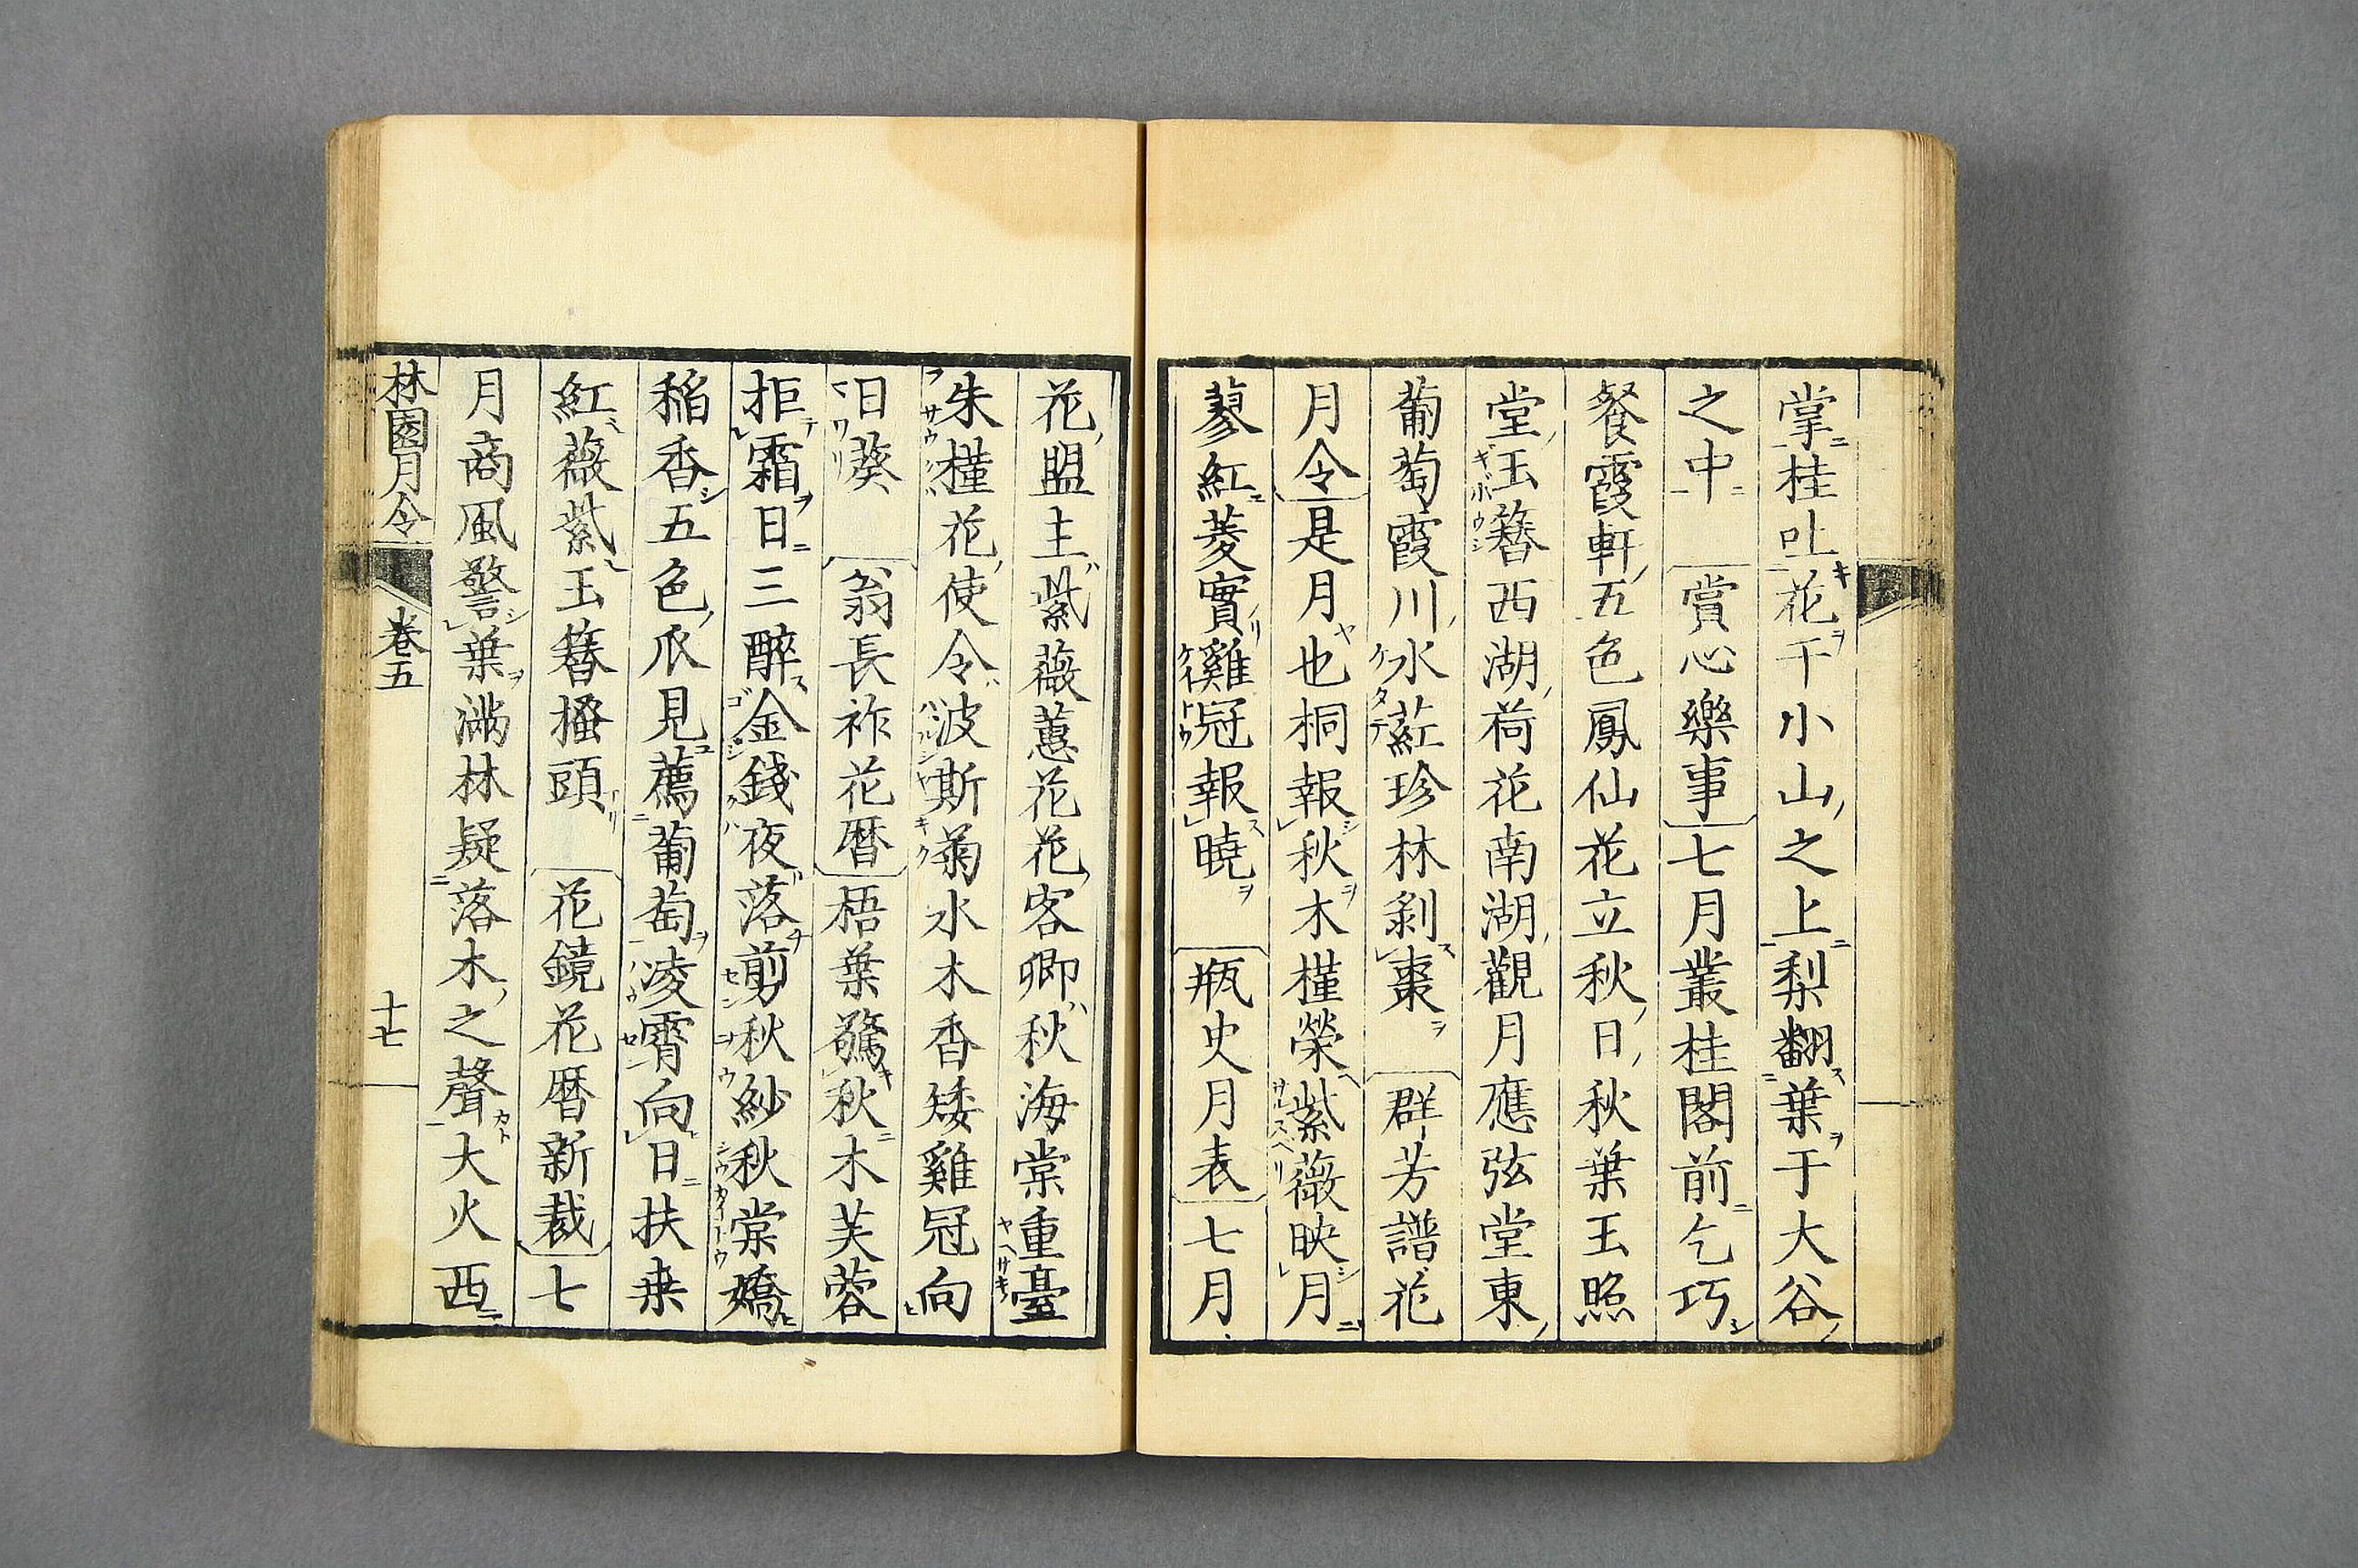 掌桂吐花干小山之上梨翻葉于大谷
之中　賞心樂事七月叢桂閣前乞巧
餐霞軒五色鳳仙花立秋日秋葉玉照
堂玉簪西湖荷花南湖觀月應弦堂東
葡萄霞川水葒珍林剝棗　群芳譜花
月令是月也桐報秋木槿榮紫薇映月
蓼紅菱實雞冠報曉　瓶史月表七月
花盟主紫薇蕙花花客卿秋海棠重臺
朱槿花使令波斯菊水木香矮雞冠向
日葵　翁長祚花暦梧葉驚秋木芙蓉
拒霜日三醉金錢夜落剪秋紗秋棠嬌
稲香五色爪見薦葡萄凌霄向日扶桒
紅薇紫玉簪搔頭　花鏡花暦新裁七
月商風警葉滿林疑落木之聲大火西
林園月令　卷五　十七